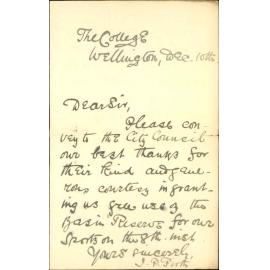 The College
Wellington, Dec. 10th
Dear Sir,
Please con-
vey to the City Council
our best thanks for
their kind and gene-
rous courtesy in grant-
ing us free use of the
Basin Reserve for our
Sports on the 8th inst.
Yours sincerely,
J. P. Firth